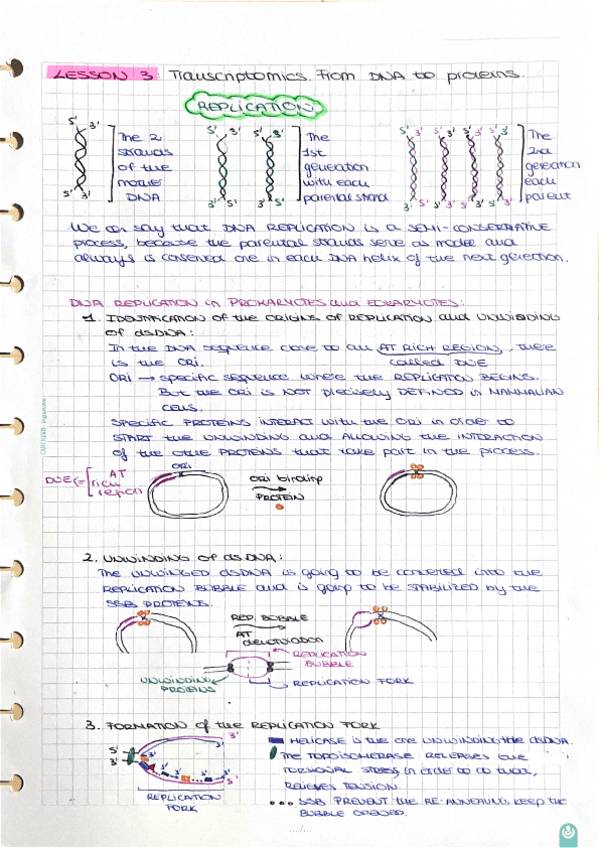 LESSON 3: Transcriptomics. From DNA to proteins.
REPLICATION
5' 3'
5' 3'
The 2
strands
of the
mother
DNA
5' 3' 3'
3' 5' 3' 5'
The
1st
generation
with each
parental strand
5' 3' 5' 3' 5' 3' 5' 3'
3' 5' 3' 5' 3' 5' 3' 5'
The
2nd
generation
each
parent
We can say that DNA REPLICATION is a SEMI-CONSERVATIVE
process, because the parental strands serve as model and
always is conserved one in each DNA helix of the next generation.
DNA REPLICATION in PROKARYOTES and EUKARYOTES:
1. IDENTIFICATION of the ORIGINS OF REPLICATION and UNWINDING
of dsDNA:
In the DNA sequence close to an AT RICH REGION, there
is the ORI. called DUE
ORI → specific sequence where the REPLICATION BEGINS.
But the ORI is NOT precisely DEFINED in MAMMALIAN
CELLS.
Specific PROTEINS INTERACT with the ORI in order to
START the UNWINDING and ALLOWING the INTERACTION
of the other PROTEINS that take part in the process.
DUE =
AT
rich
region
ORI
ORI binding
PROTEIN
2. UNWINDING OF dsDNA:
The UNWINGED dsDNA is going to be converted into the
REPLICATION BUBBLE and is going to be STABILIZED by the
SSB PROTEINS.
REP. BUBBLE
AT
denaturation
REPLICATION
BUBBLE
UNWINDING
PROTEINS
REPLICATION FORK
3. FORMATION of the REPLICATION FORK
5'
3'
3'
5'
REPLICATION
FORK
HELICASE is the one UNWINDING the dsDNA.
The TOPOISOMERASE RELEASES
TORSIONAL STRESS in order to
RELIEVES TENSION.
SSB PREVENT the RE-ANNEALING, KEEP the
BUBBLE OPENED.
.../...